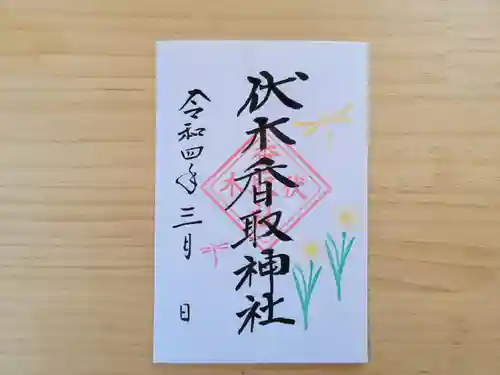 伏木香取神社
令和四年三月 日